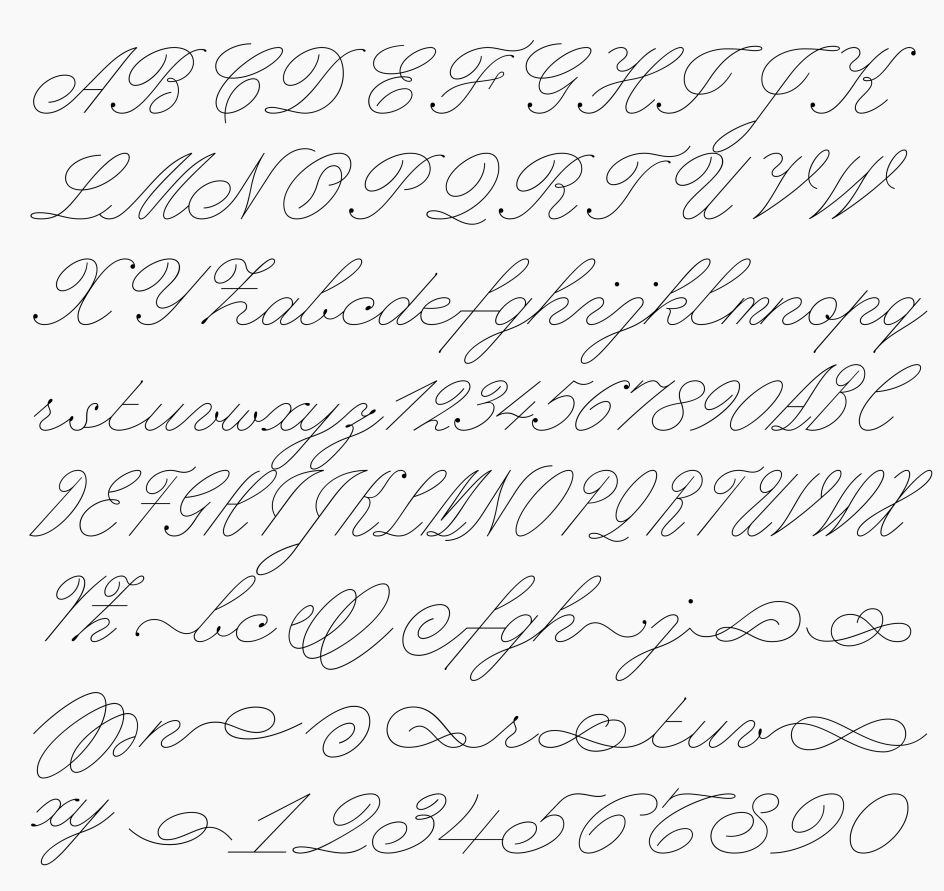 ABCDEFGHIJK
LMNOPQRTUVW
XYZabcdefghijklmnopq
rstuvwxyz1234567890ABC
DEFGHIJKLMNOPQRTUVWX
YZ bc fgh j
n r tuv
xy 1234567890